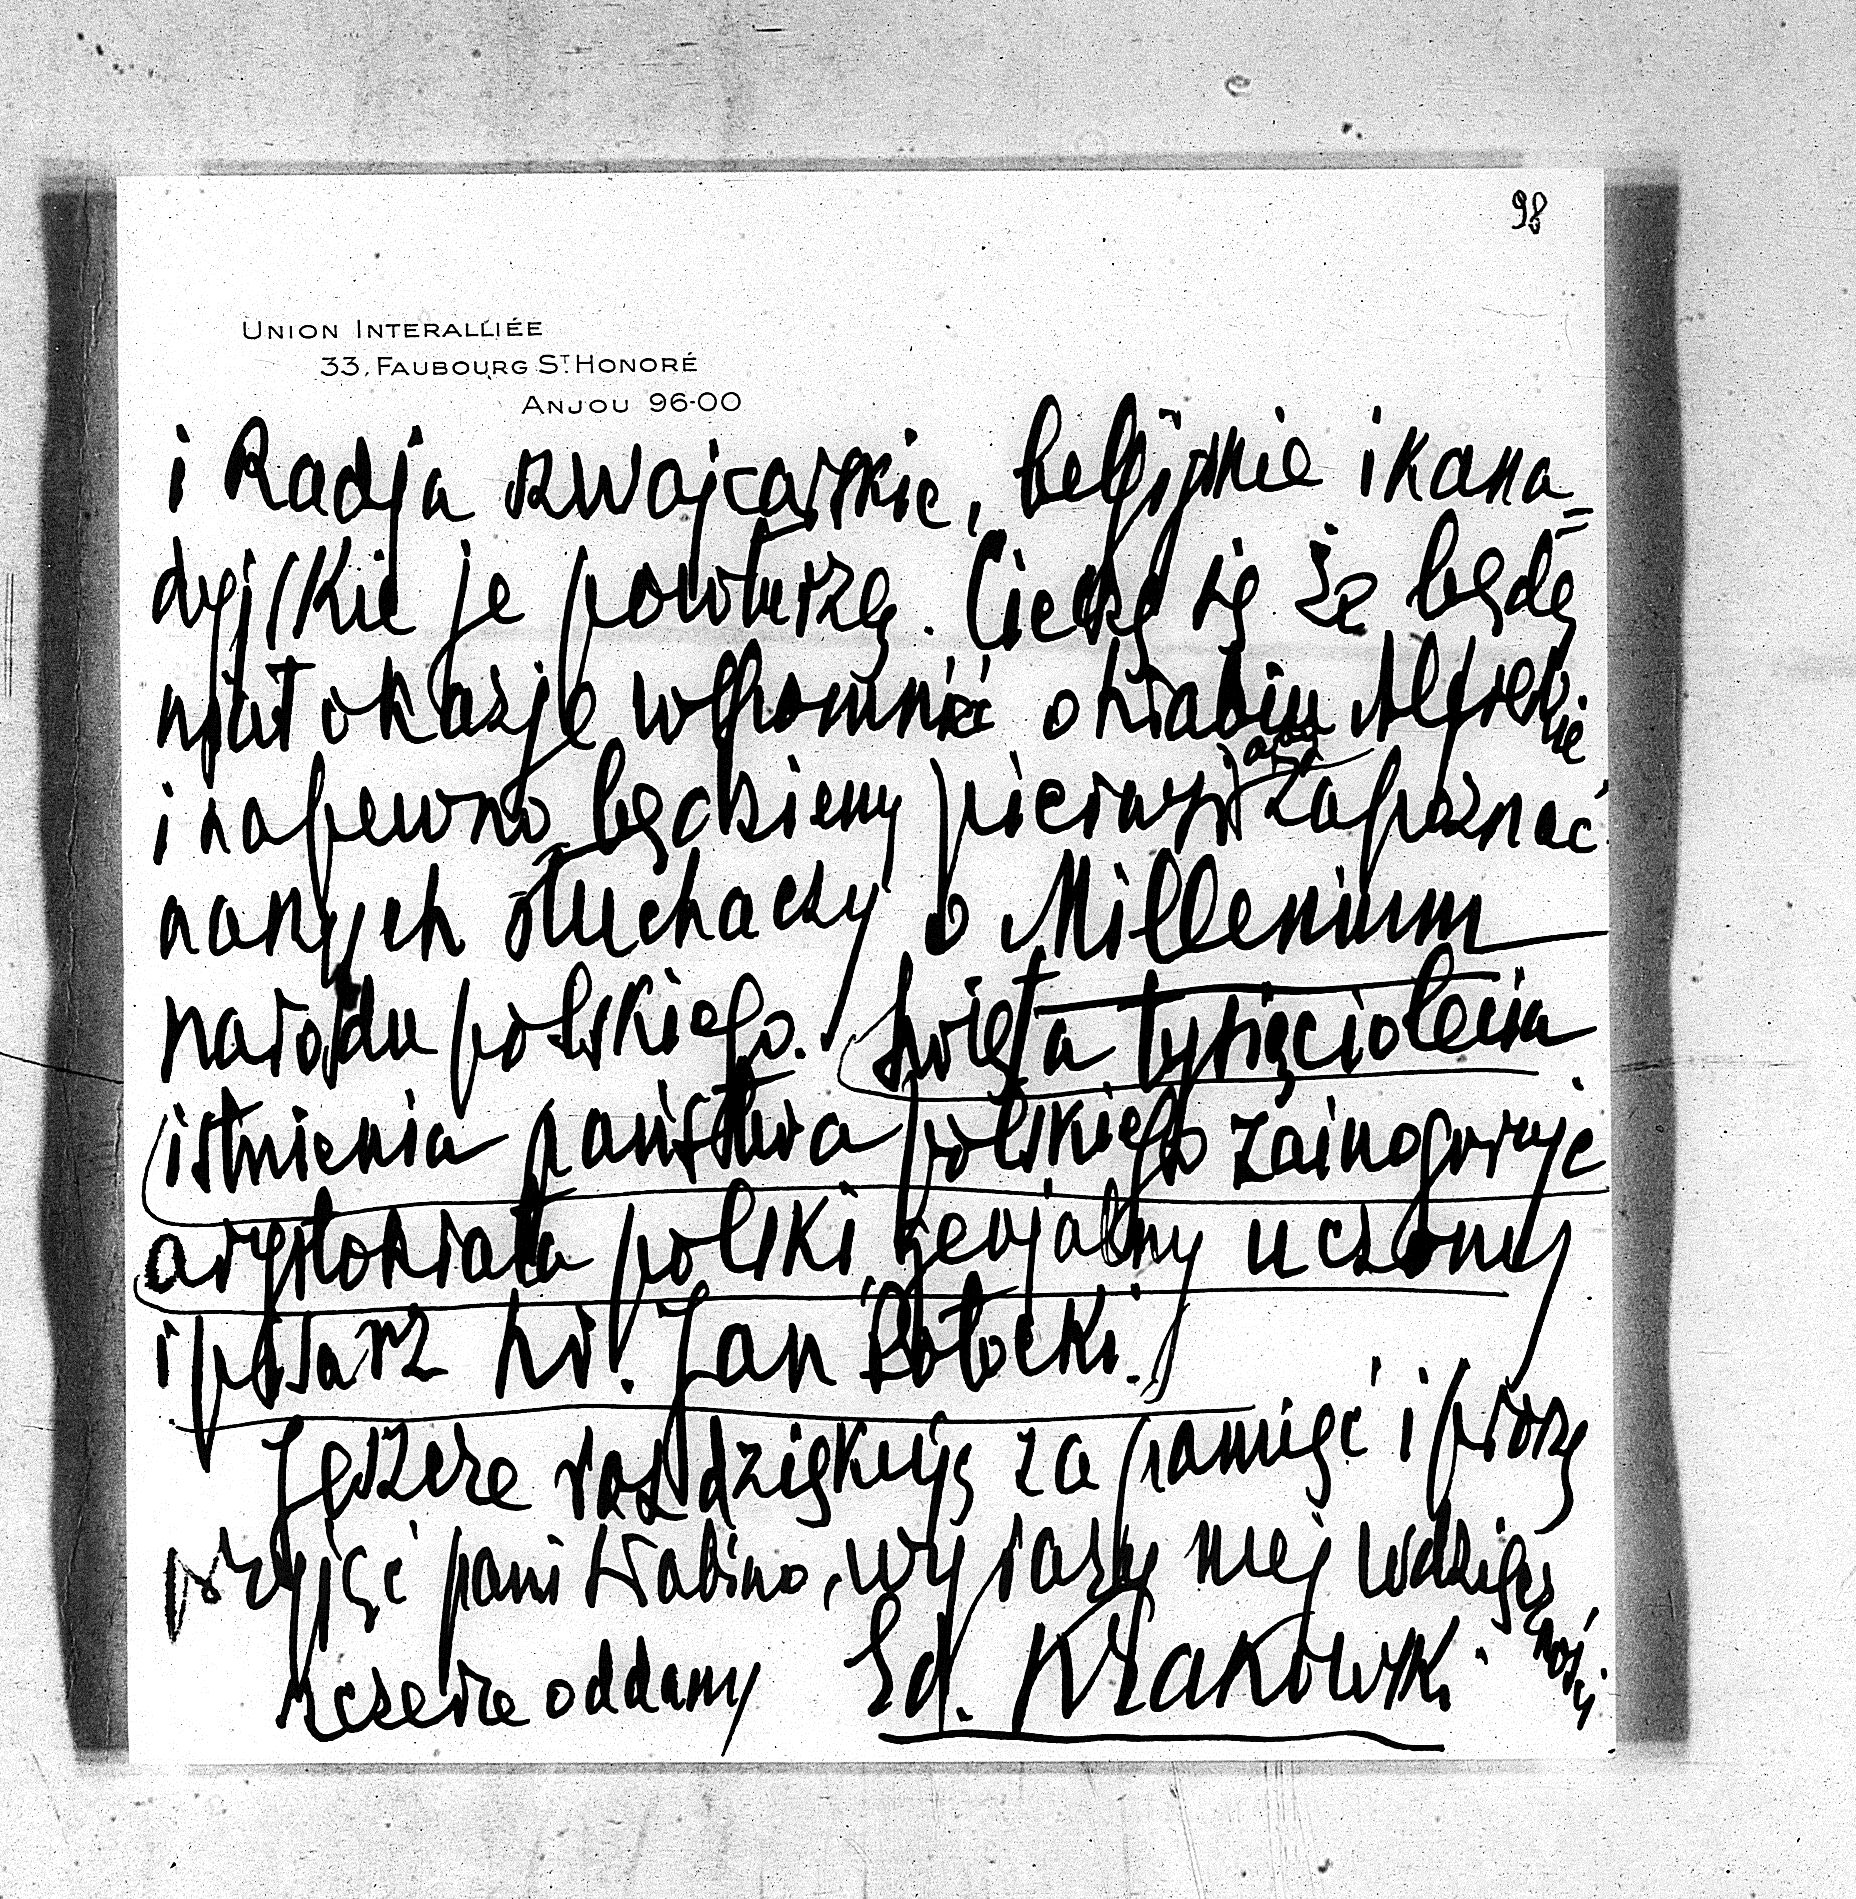 98
UNION INTERALLIÉE
33, FAUBOURG ST. HONORÉ
ANJOU 96-00
i Radja szwajcarskie, belgijskie i kana=
dyjskie je powtórzą. Cieszę się że będę
miał okazję wspomnieć o hrabiu Alfredzie
i napewno będziemy pierwsi zapoznać
naszych słuchaczy o Millenium
narodu polskiego. Święta tysięciolecia
istnienia państwa polskiego zainoguruje
arystokrata polski, genjalny uczony
i pisarz hr. Jan Potocki.
Jeszcze raz dziękuję za pamięć i proszę
przyjąć pani hrabino, wyrazy mej wdzięcz
ności.
szczerze oddany Ed. Krakowski